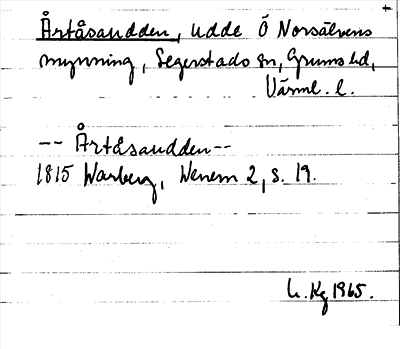 Årtåsaudden, udde Ö Norsälvens
mynning, Segerstads sn, Grums hd,
Värml. l.
-- Årtåsaudden--
1815 Warberg, Wenern 2, s. 19.
L. Kg 1965.